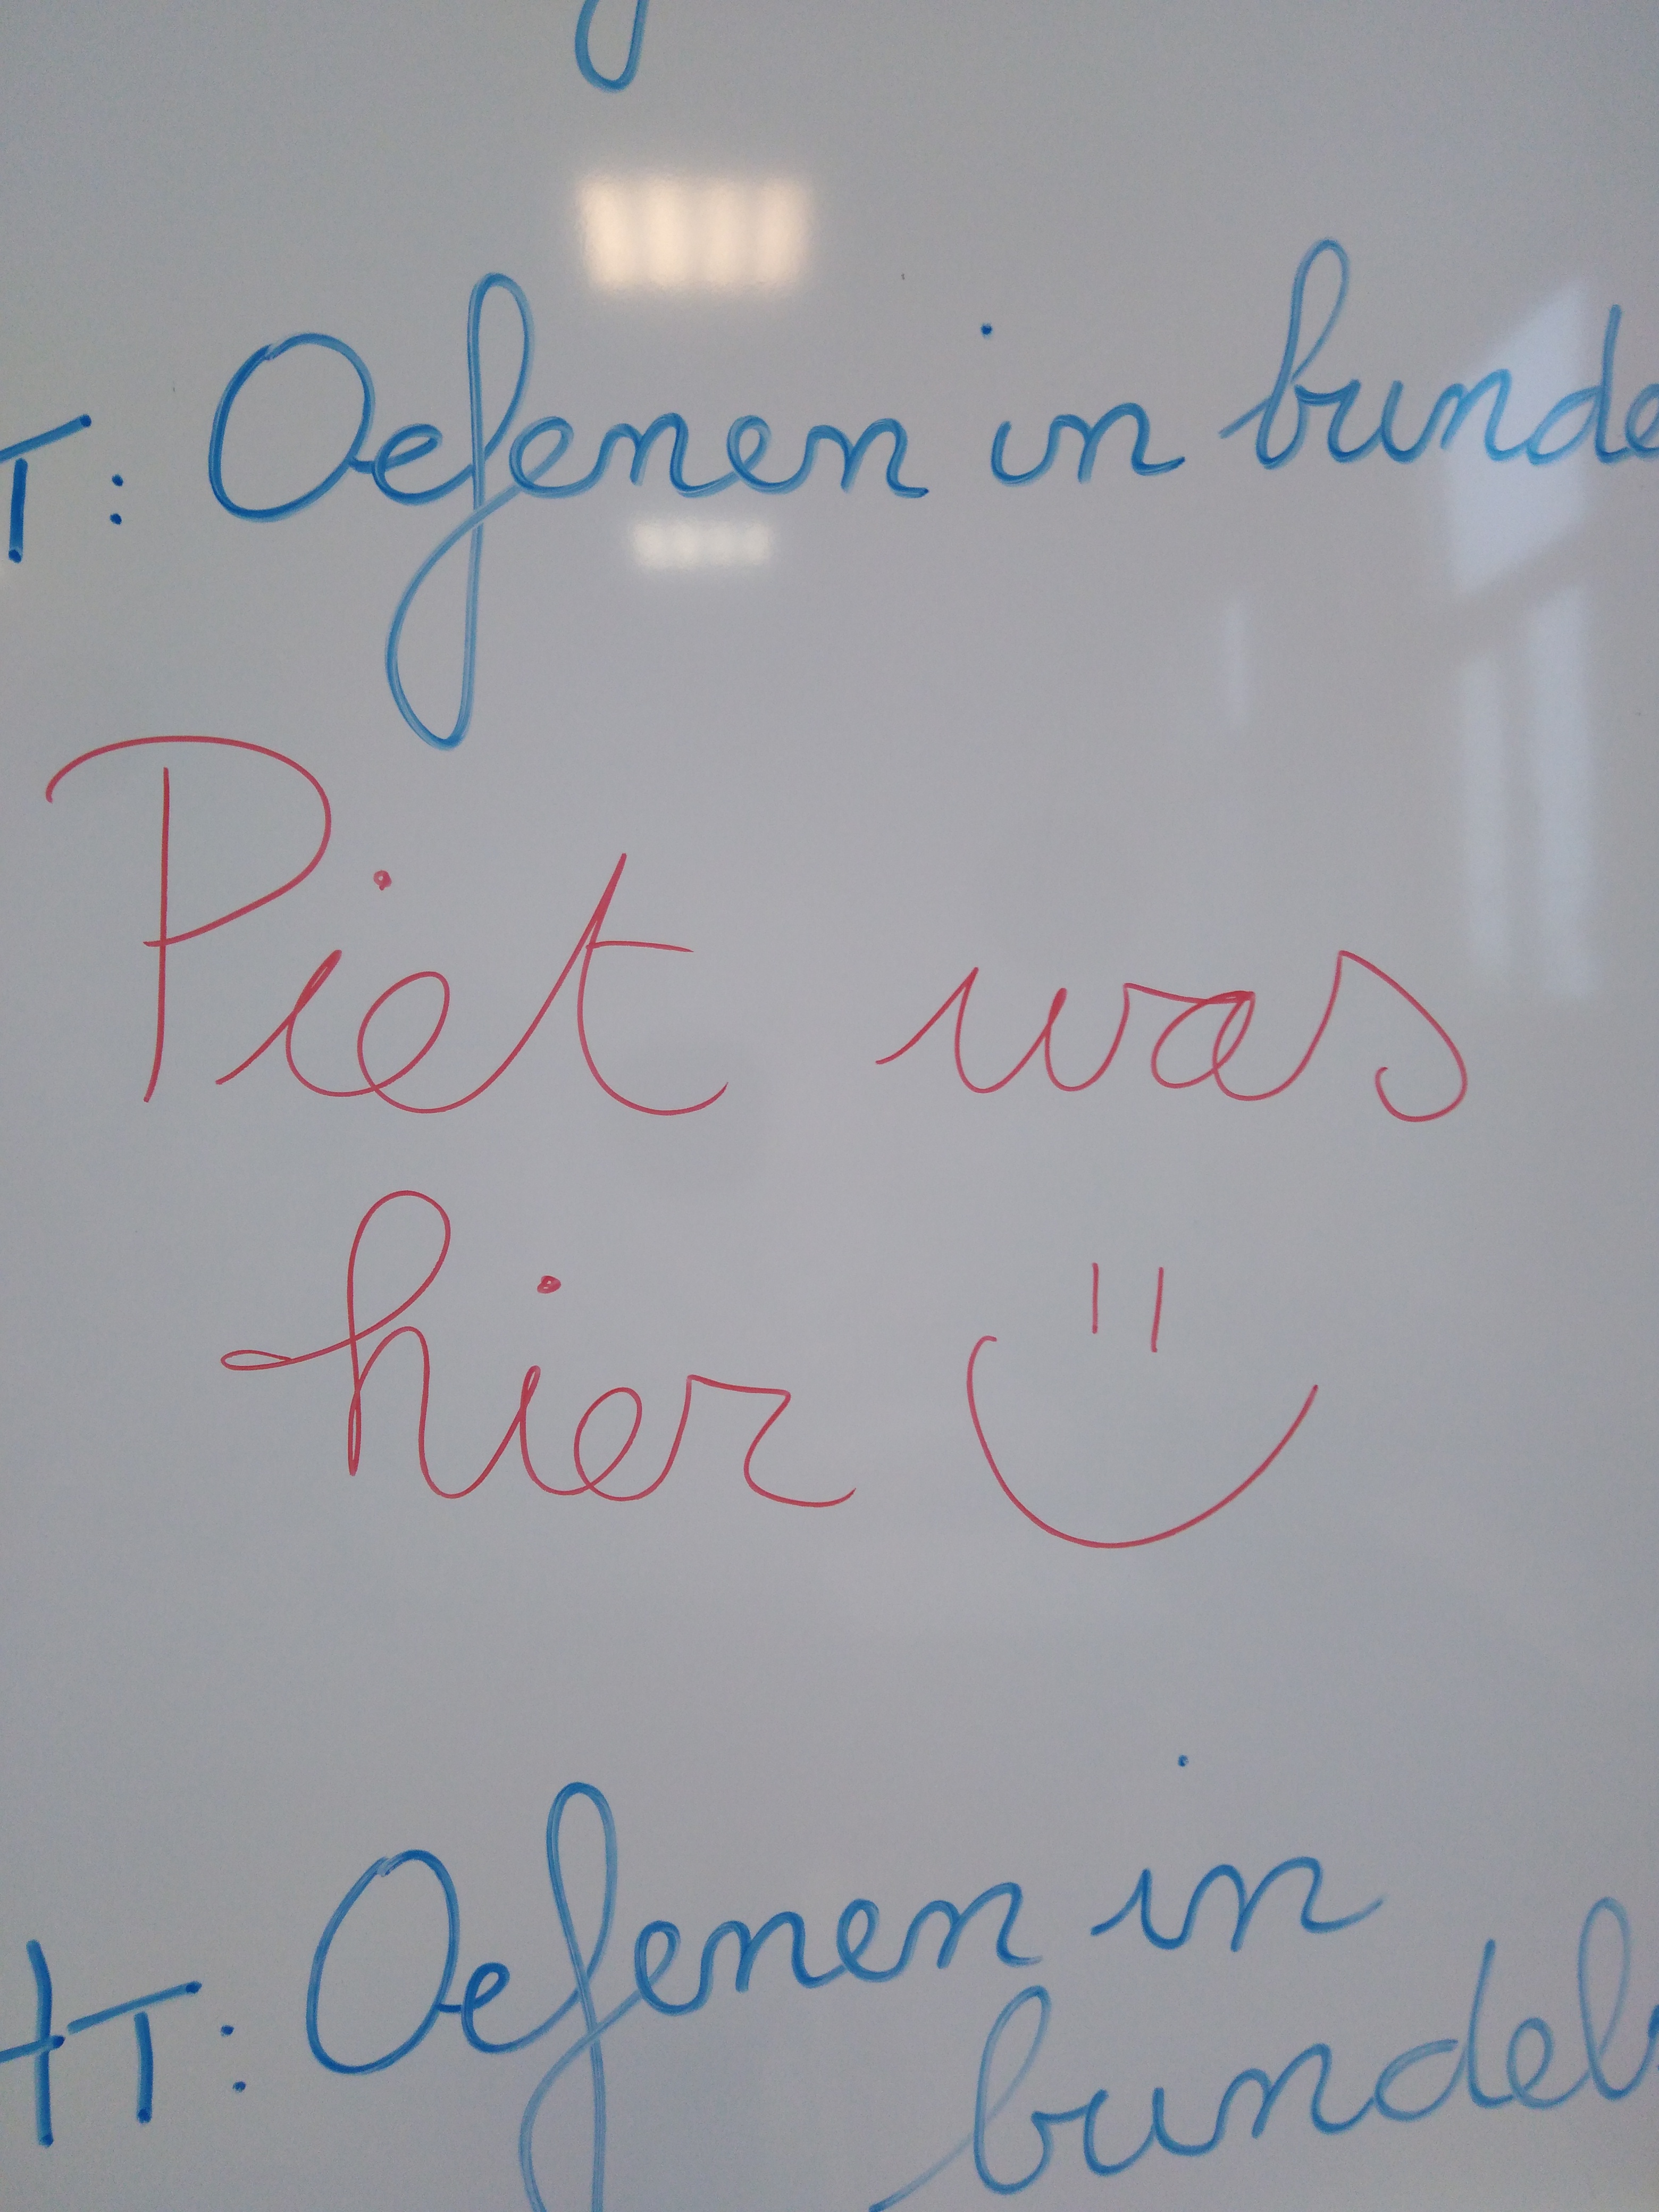 T: Oefenen in bunde
Piet was
hier
HT: Oefenen in
bundel